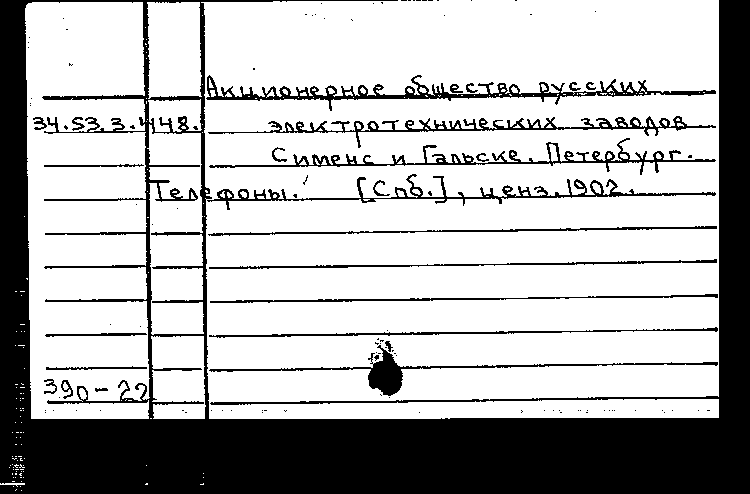 Акционерное общество русских
34.53.3.448. электротехнических заводов
Сименс и Гальске. Петербург.
Телефоны. [Спб.], ценз. 1902.
390-22